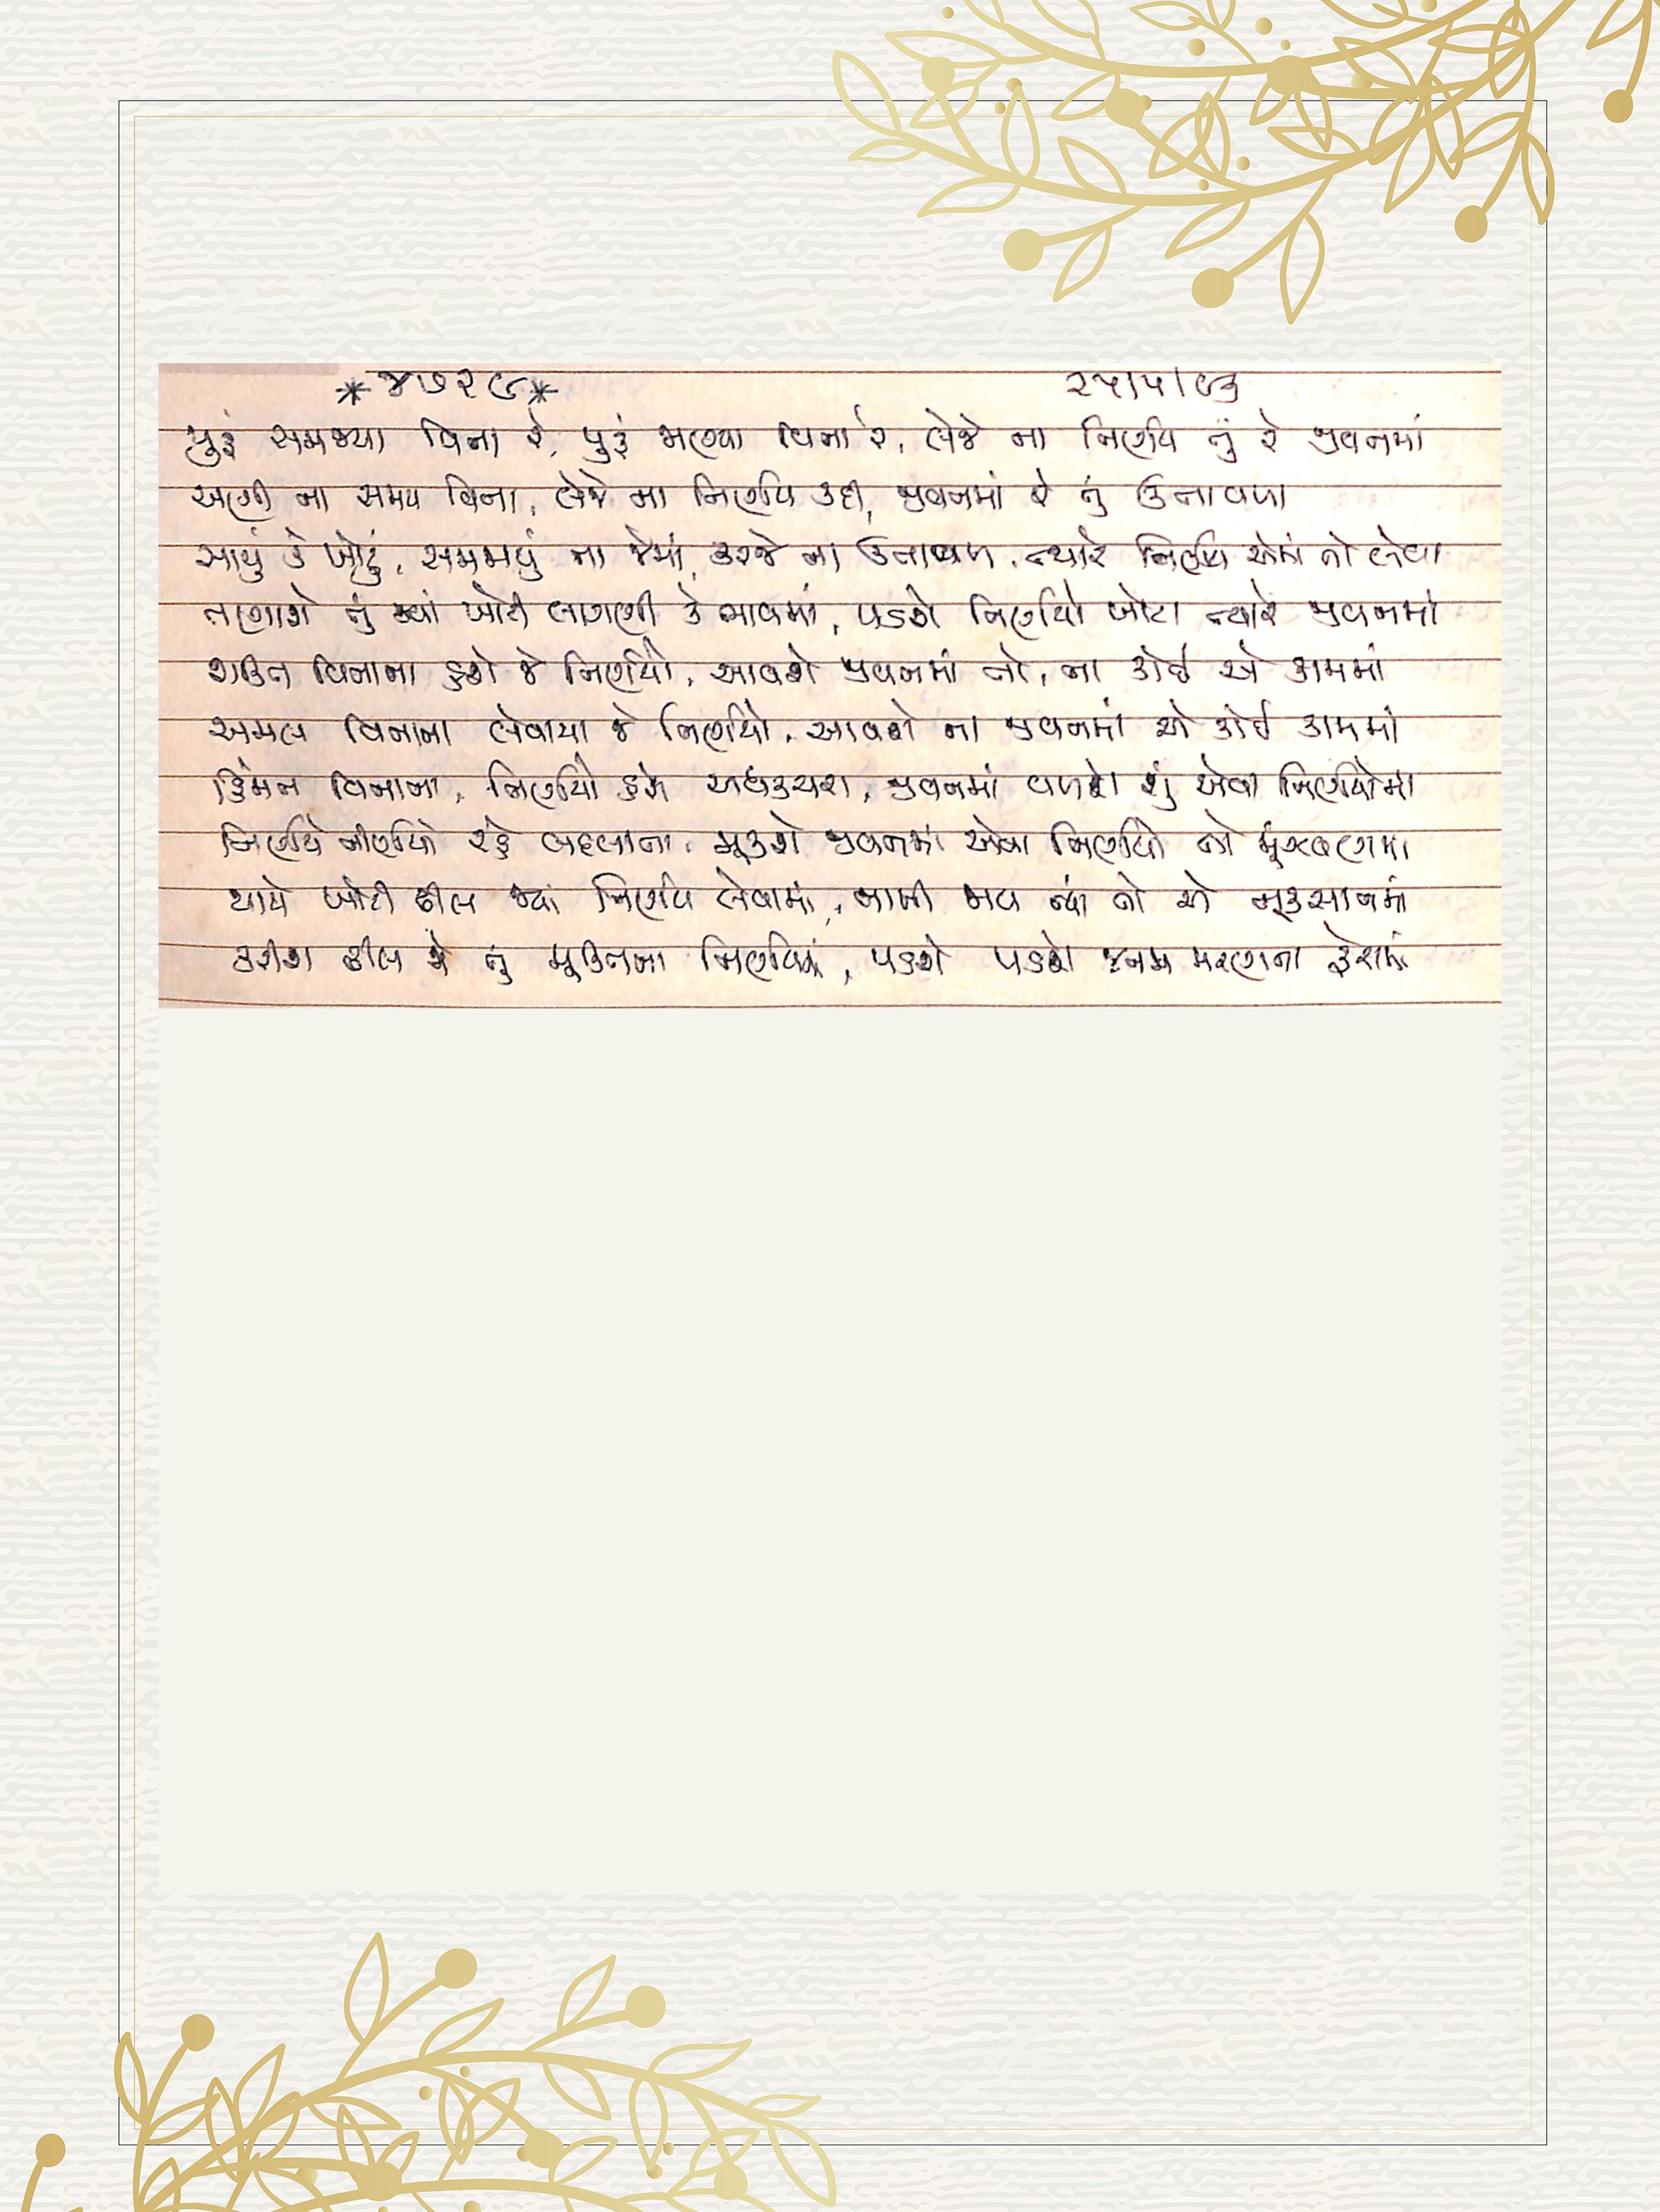 *૪૭૨૯* ૨૫/૫/૯૩
પુરું સમજ્યા વિના રે, પુરું જાણ્યા વિના રે, લેજે ના નિર્ણય તું રે જીવનમાં
અણી ના સમય વિના, લેજે ના નિર્ણય કદી, જીવનમાં રે તું ઉતાવળા
સાચું કે ખોટું, સમજાયું ના જેમાં, કરજે ના ઉતાવળ, ત્યારે નિર્ણય એમાં તો લેવા
તણાશે તું જ્યાં ખોટી લાગણી કે ભાવમાં, પડશે નિર્ણયો ખોટા ત્યારે જીવનમાં
શક્તિ વિનાના હશે જે નિર્ણયો, આવશે જીવનમાં તો, ના કોઈ એ કામમાં
અમલ વિનાના લેવાયા જે નિર્ણયો, આવશે ના જીવનમાં એ કોઈ કામમાં
હિંમત વિનાના, નિર્ણયો હશે અધકચરા, જીવનમાં વળશે શું એવા નિર્ણયોમાં
નિર્ણયે નીર્ણયો રહે બદલાતા, મૂકશે જીવનમાં એવા નિર્ણયો તો મૂંઝવણમાં
થાયે ખોટી ઢીલ જ્યાં નિર્ણય લેવામાં, જાય ત્યાં તો એ નૂકસાનમાં
કરીશ ઢીલ જો તું મૂક્તિના નિર્ણયમાં, પડશે પડશે જનમ મરણના ફેરામાં